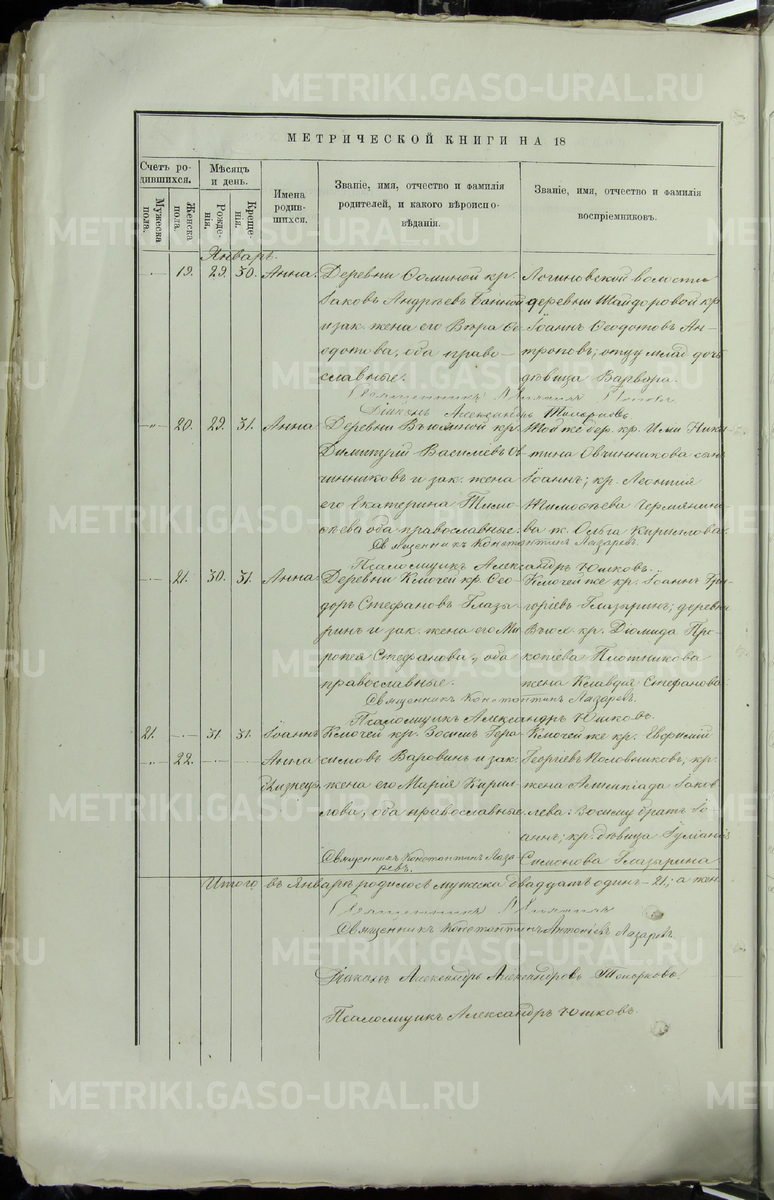 МЕТРИЧЕСКОЙ КНИГИ НА 18
Счетъ ро-
дившихся.
Мужеска пола.
Женска пола.
Мѣсяцъ и день.
Рожде-
нія.
Креще-
нія.
Имена
родив-
шихся.
Званіе, имя, отчество и фамилія
родителей, и какого вѣроиспо-
вѣданія.
Званіе, имя, отчество и фамилія
воспріемниковъ.
Январь.
19. 29. 30. Анна.
Деревни кр.
Іаковъ Андреевъ
и зак. жена его Вѣра Ѳе-
одотова, оба право-
славные.
Логиновской волости
деревни Шайдоровой кр.
Іоаннъ Ѳеодотовъ Ан-
троповъ; отцу млад. дочь
дѣвица Варвара.
Священникъ
Діаконъ Александръ Топорковъ
20. 29. 31. Анна.
Деревни кр.
Димитрій Василіевъ Ов-
чинниковъ и зак. жена
его Екатерина Тимо-
ѳеева оба православные.
Той же дер. кр. Ники-
тина Овчинникова сынъ
Іоаннъ; кр. Леонтія
Тимоѳеева
ж. Ольга Кириллова.
Священникъ Константинъ Лазаревъ.
Псаломщикъ Александръ Юшковъ.
21. 30. 31. Анна.
Деревни Ключей кр. Ѳео-
доръ Стефановъ Глаза-
ринъ и зак. жена его Ми-
ропея Стефанова, оба
православные.
Ключей же кр. Іоаннъ Гри-
горіевъ Глазаринъ; деревни
кр. Діомида Про-
копіева Плотникова
жена Клавдія Стефанова.
Священникъ Константинъ Лазаревъ.
Псаломщикъ Александръ Юшковъ.
21. 31. 31. Іоаннъ
22. Анна
близнецы.
Ключей кр. Зосимъ Гера-
симовъ Варовинъ и зак.
жена его Марія Кирил-
лова, оба православные.
Ключей же кр. Евфимій
Георгіевъ Половниковъ; кр.
жена Іаков-
лева: Зосиму братъ Іо-
аннъ; кр. дѣвица Іуліанія
Симонова Глазарина
Священникъ Константинъ Лаза-
ревъ.
Итого въ Январѣ родилось мужеска двадцать одинъ - 21; а жен-
Священникъ
Священникъ Константинъ Антоніевъ Лазаревъ
Діаконъ Александръ Александровъ Топорковъ
Псаломщикъ Александръ Юшковъ.
METRIKI.GASO-URAL.RU